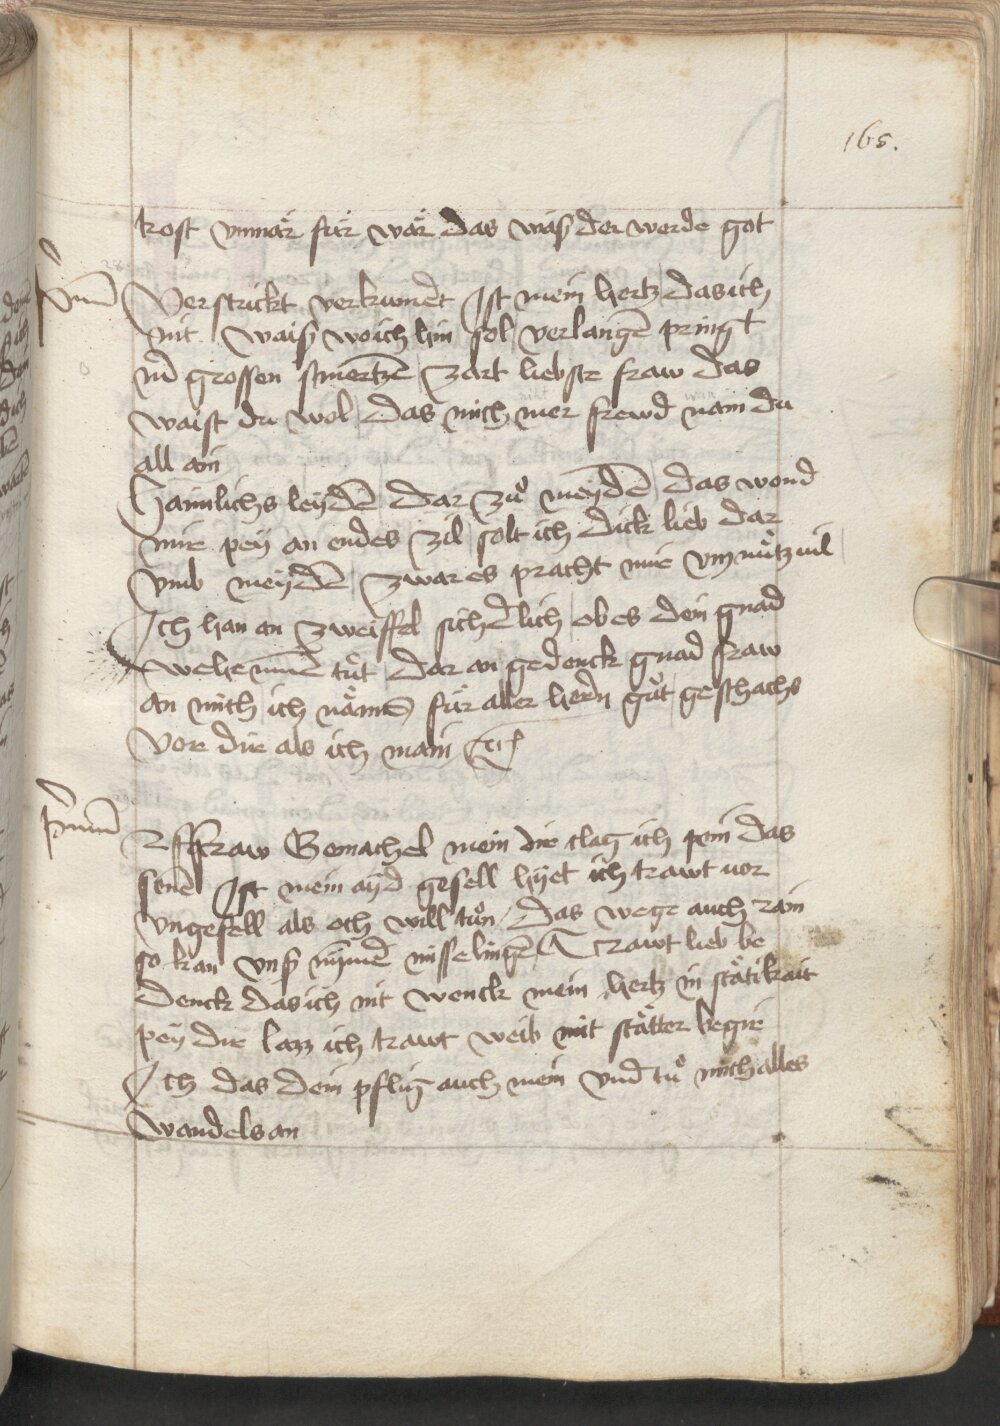 165.
trost vnmär für wär das wäiß der werde got
Verstrickt verkumert Ist mein hertz das ich
nit waiß wo ich hin sol verlangē pringt
mir grossen smertzē zart liebste fraw das
waist du wol das mich mer frewd nain du
all ain
Haimlichs leydē dar zů meydē das wond
mir pey an endes zil solt ich dick lieb dar
vmb meydē zwar es pracht mir vnmůtz vil
Ich han an zweiffel sicherlich ob es dein gnad
tůt dar an gedenck gnad fraw
an mich ich näms für aller hern gůt geschachs
vor dir als ich main
fraw Gemachel mein dir clag ich pein das
Ist mein ayd gesell hyet ich trawt vor
vngefell als och will tůn das wege auch rain
so kan vnß nymēd misselingē A trawt lieb be
denck das ich nit wenck mein hertz in stätikait
pey dir lazz ich trawt weib mit stätter begir
Ich das dein pflig auch mein vnd tů mich alles
wandels an